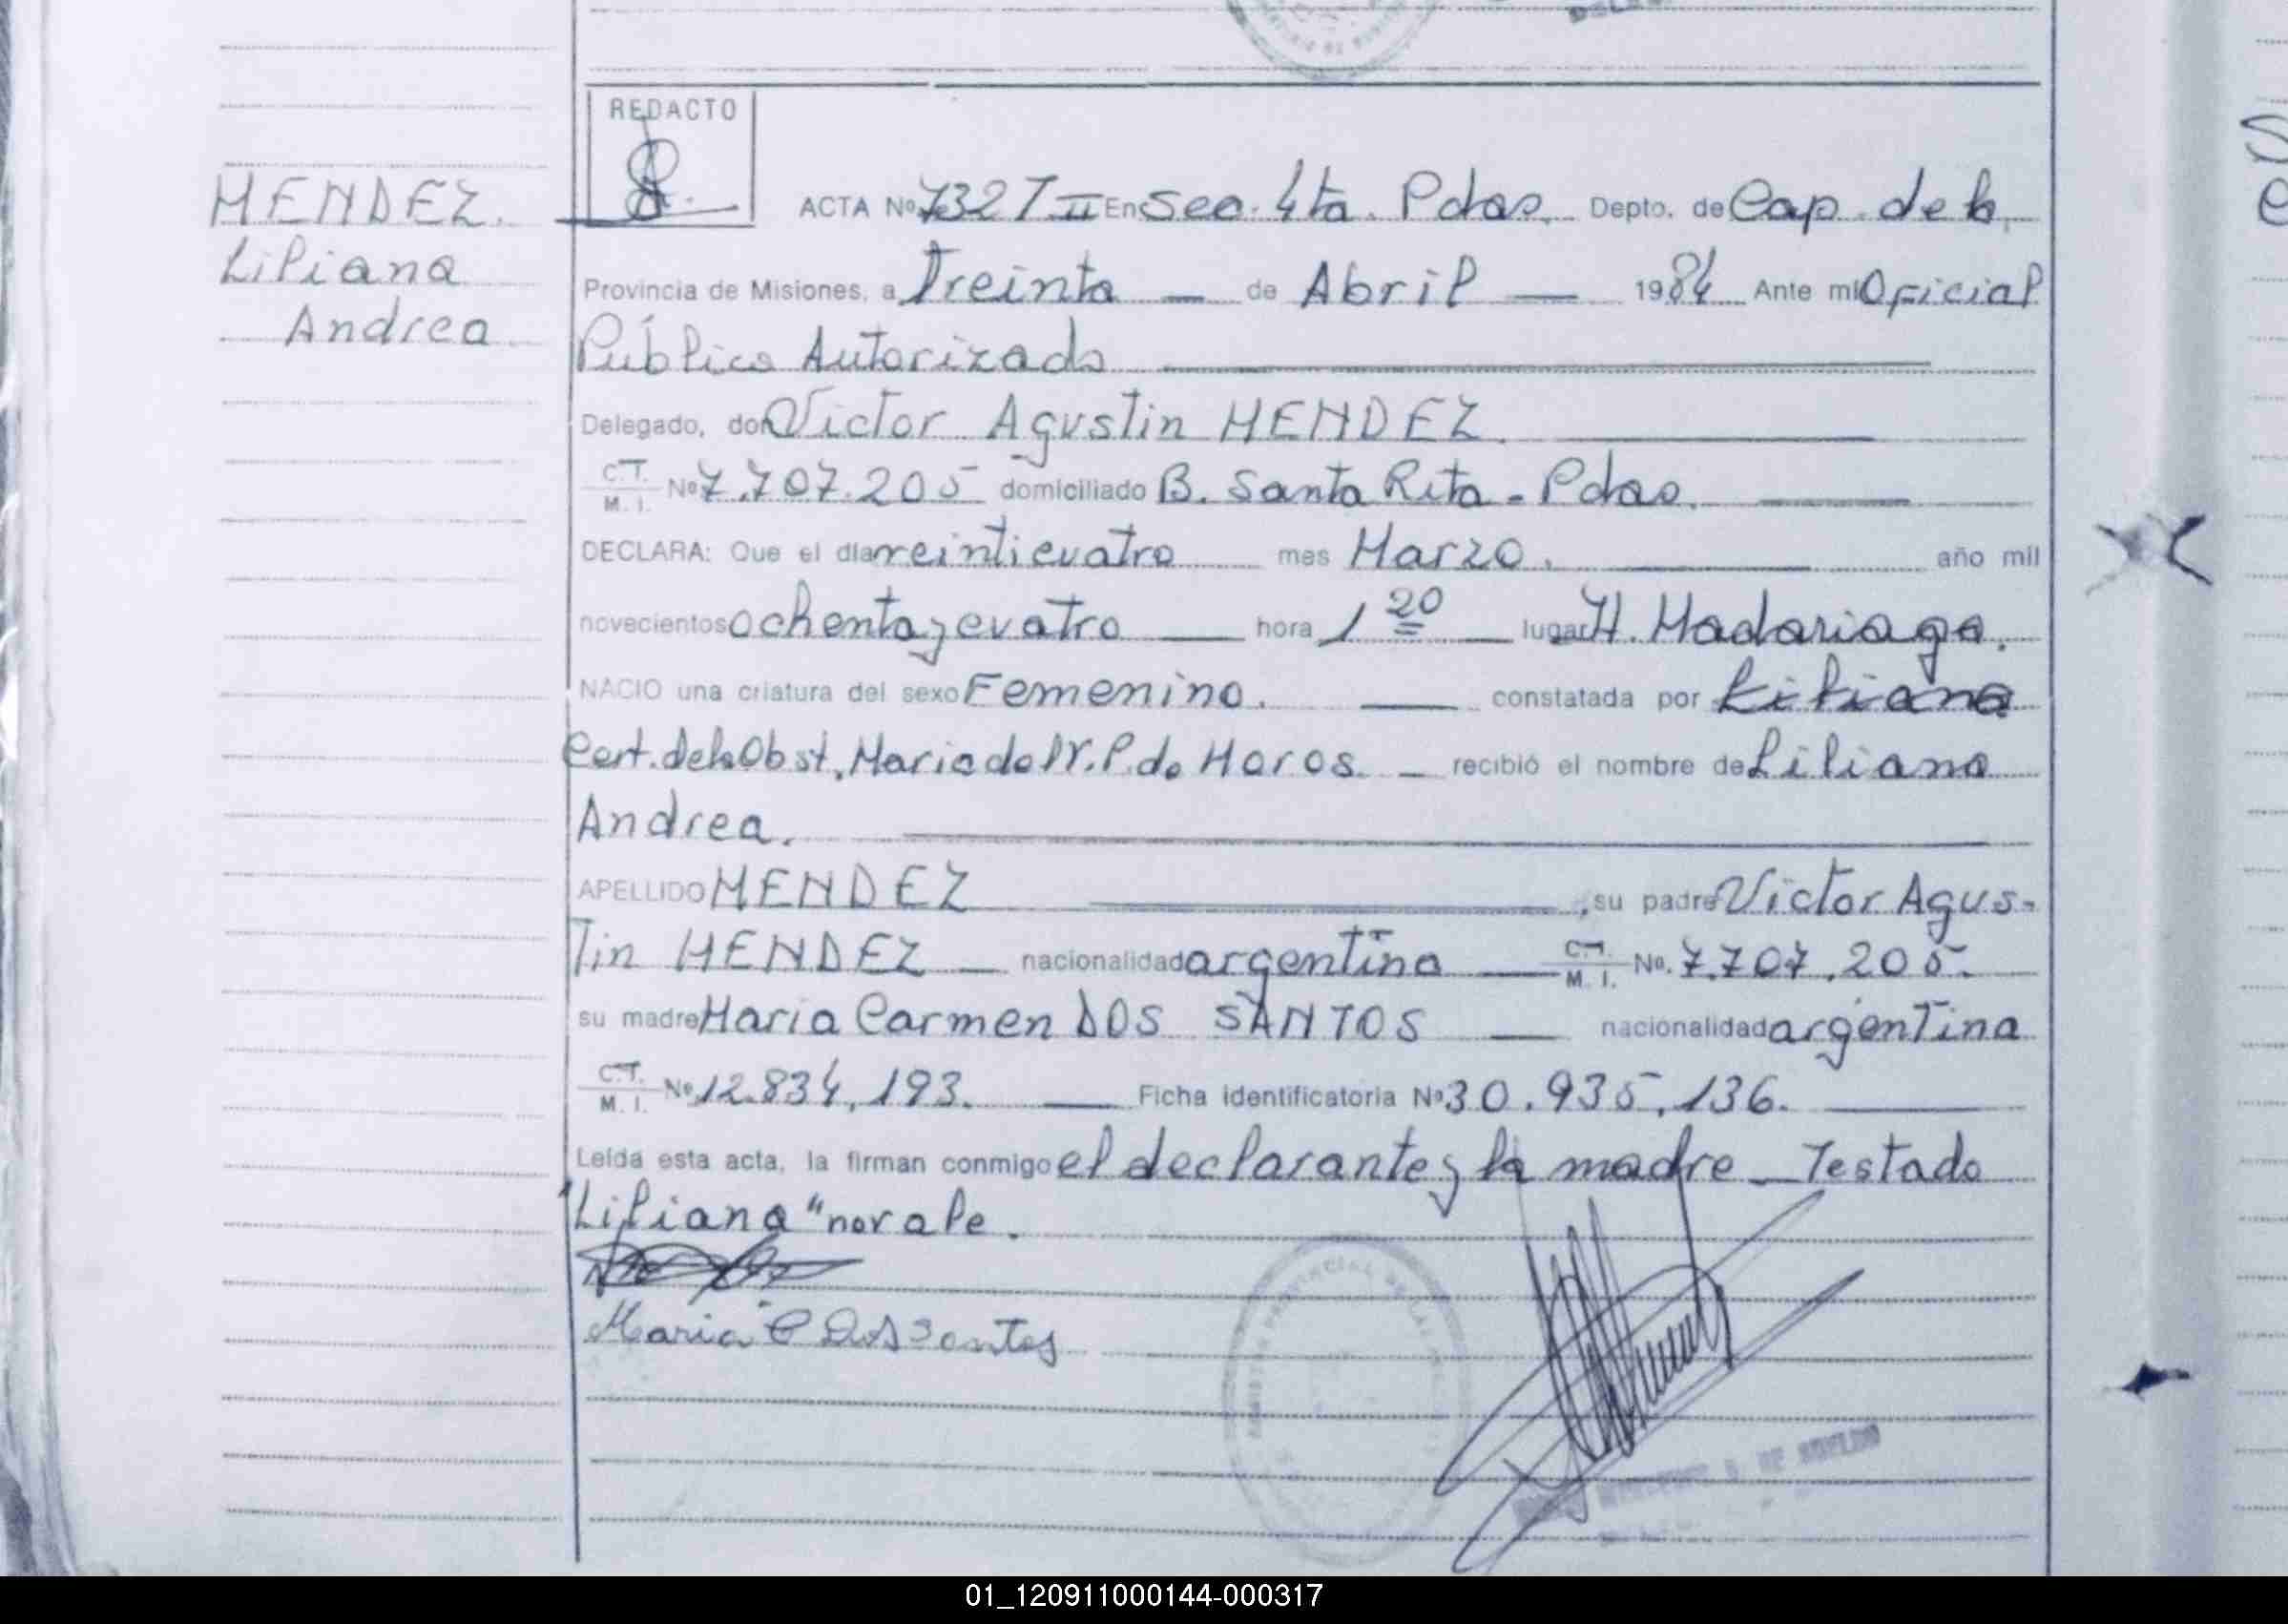 REDACTO
MENDEZ.
Liliana
Andrea
ACTA Nº 7327 II En Sec. 4ta. Pdas. Depto. de Cap. de la
Provincia de Misiones, a Treinta — de Abril — 1984 Ante mí Oficial
Público Autorizado
Delegado, don Victor Agustin MENDEZ.
C.T. / M. I. Nº 7.707.205 domiciliado B. Santa Rita - Pdas.
DECLARA: Que el día veinticuatro mes Marzo. año mil
novecientos ochenta y cuatro — hora 1 20 — lugar H. Madariaga.
NACIO una criatura del sexo Femenino. — constatada por Liliana
Cert. de la Obst. Maria de P. de Horos — recibió el nombre de Liliana
Andrea.
APELLIDO MENDEZ , su padre Victor Agus-
tin MENDEZ — nacionalidad argentina — C.T. / M. I. Nº. 7.707.205.
su madre Maria Carmen DOS SANTOS — nacionalidad argentina
C.T. / M. I. Nº 12.834.193. — Ficha identificatoria Nº 30.935.136.
Leída esta acta, la firman conmigo el declarante y la madre — Testado
"Liliana" no vale.
Maria C Dos Santos
01_120911000144-000317